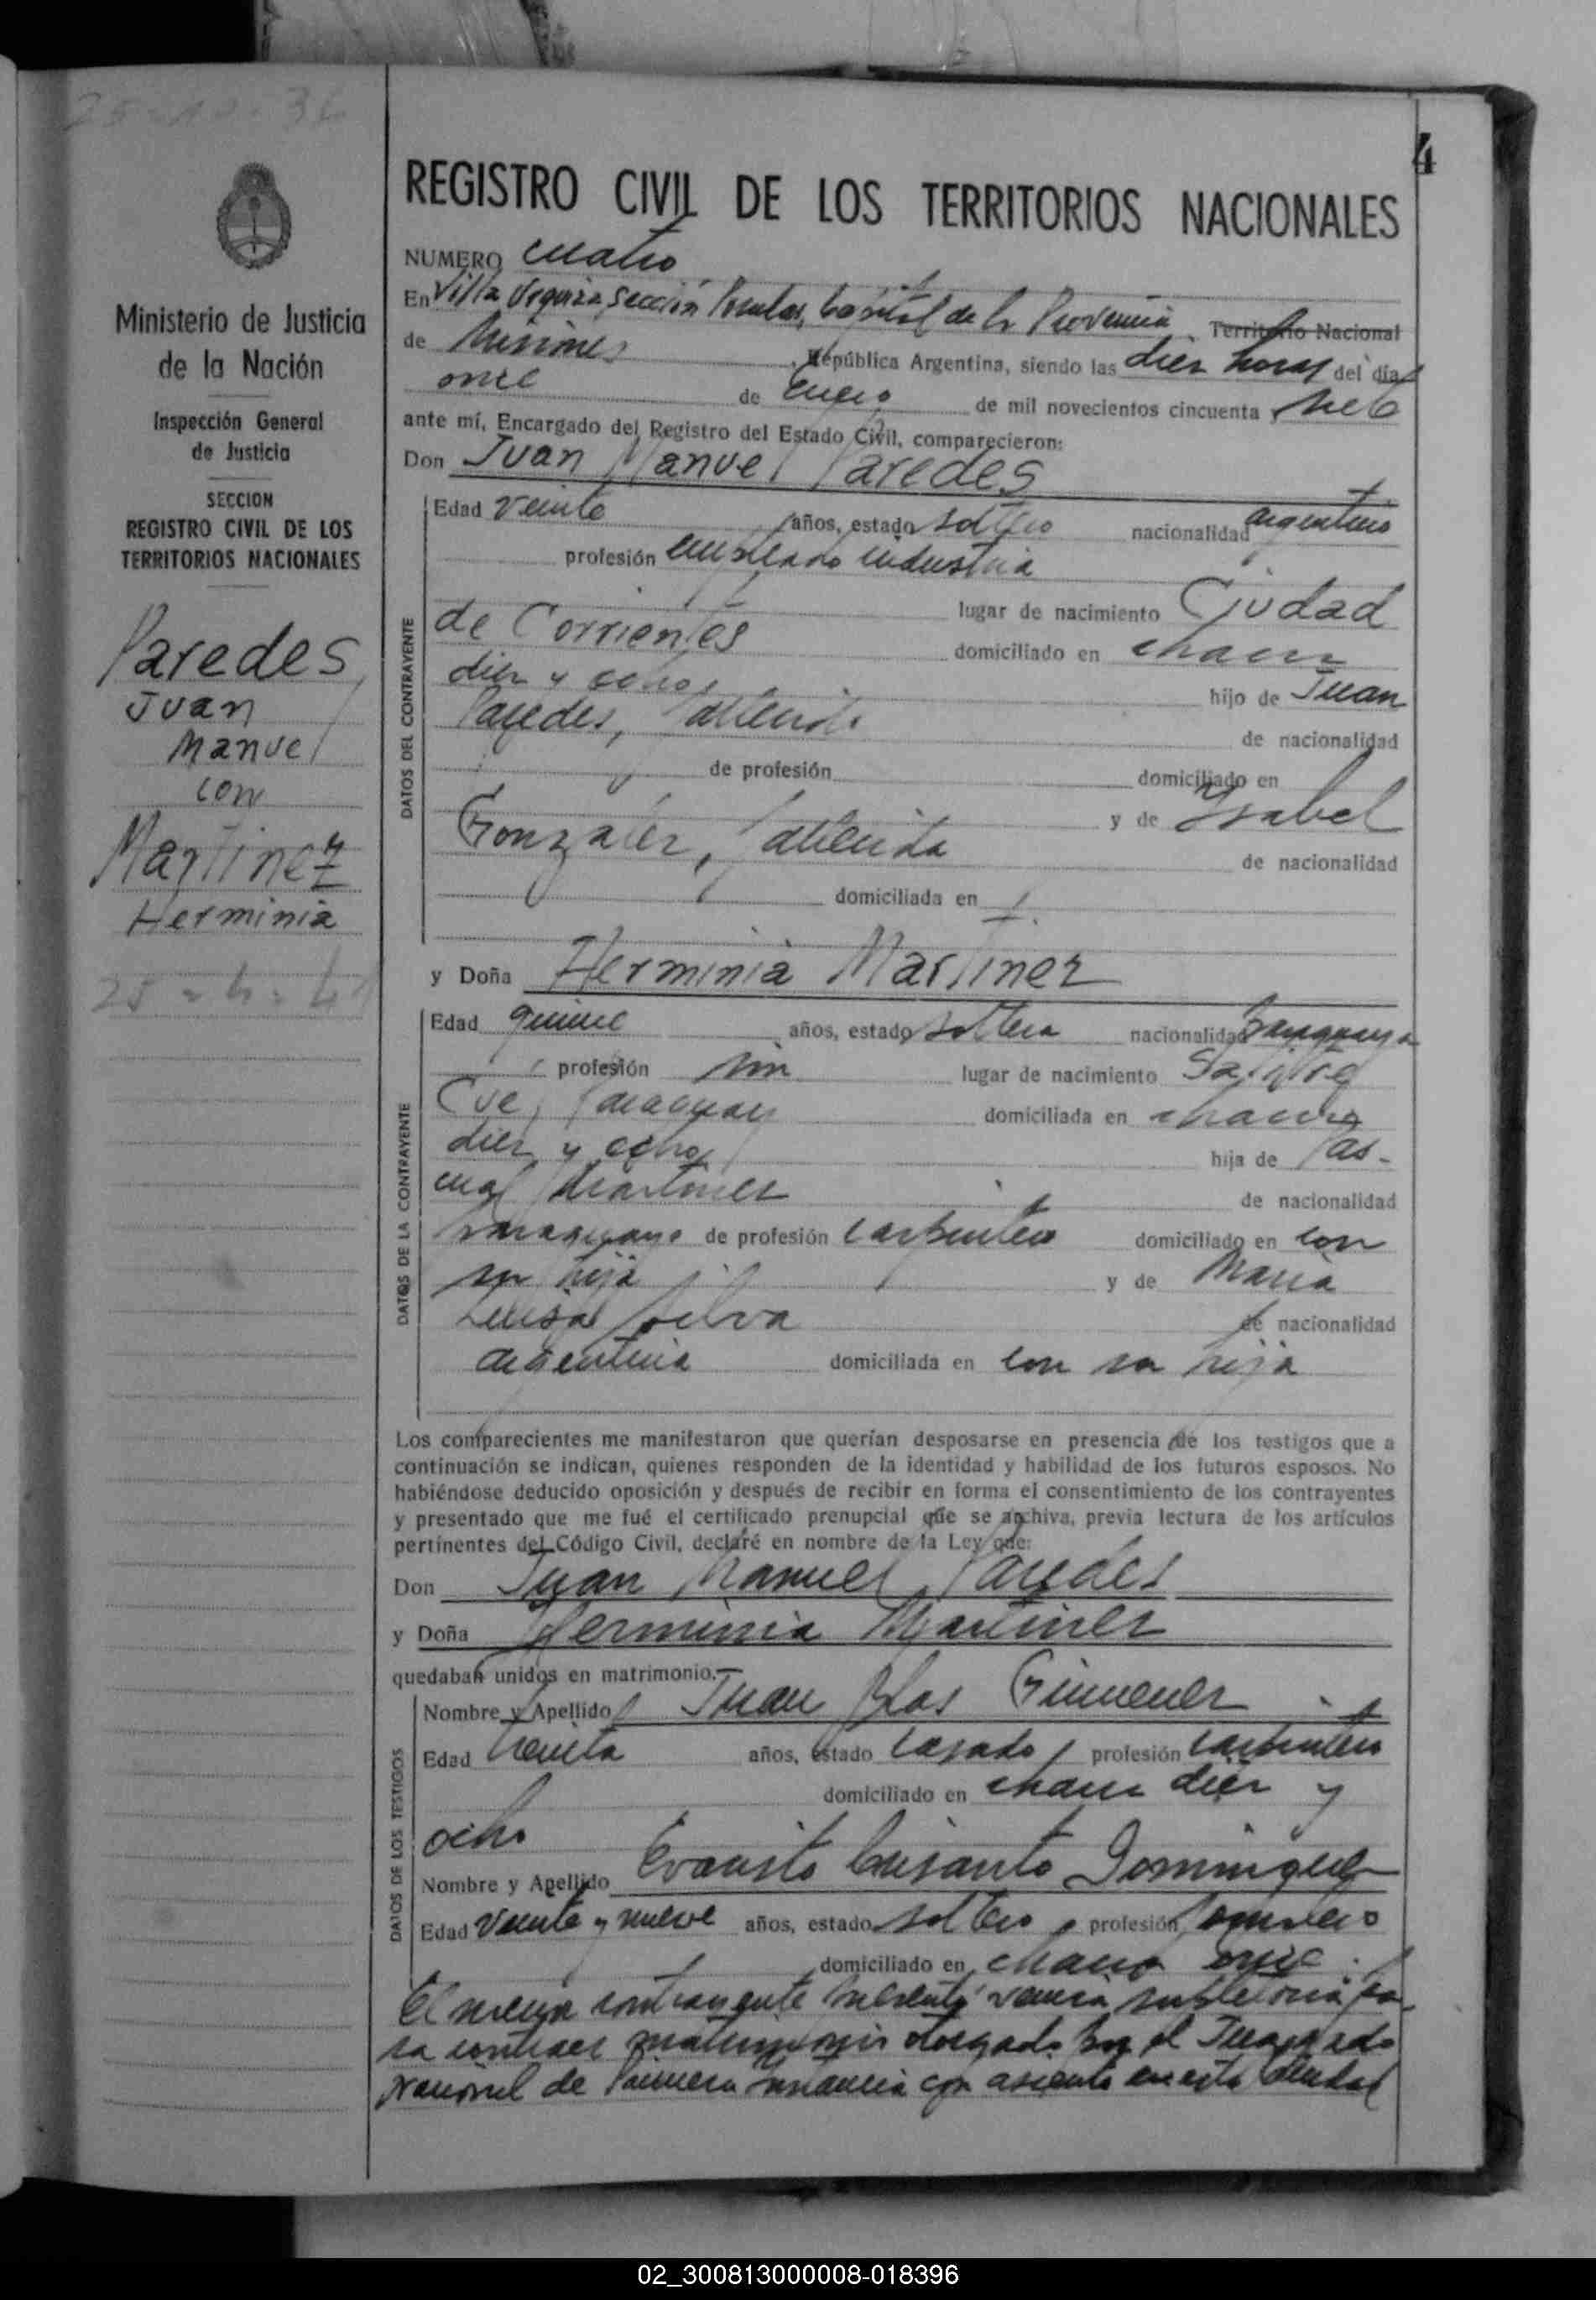 25-10-36
4
Ministerio de Justicia
de la Nación
Inspección General
de Justicia
SECCION
REGISTRO CIVIL DE LOS
TERRITORIOS NACIONALES
Paredes,
Juan
Manuel
con
Martinez
Herminia
REGISTRO CIVIL DE LOS TERRITORIOS NACIONALES
NUMERO cuatro
En Villa Urquiza Sección Posadas, Capital de la Provincia Territorio Nacional
de Misiones, República Argentina, siendo las diez horas del día
once de enero de mil novecientos cincuenta y siete
ante mí, Encargado del Registro del Estado Civil, comparecieron:
Don Juan Manuel Paredes
DATOS DEL CONTRAYENTE
Edad veinte años, estado soltero nacionalidad argentino
profesión empleado industria
lugar de nacimiento Ciudad
de Corrientes domiciliado en chacra
diez y ocho hijo de Juan
Paredes, fallecido de nacionalidad
de profesión domiciliado en
y de Ysabel
Gonzalez, fallecida de nacionalidad
domiciliada en
y Doña Herminia Martinez
DATOS DE LA CONTRAYENTE
Edad quince años, estado soltera nacionalidad paraguaya
profesión sin lugar de nacimiento
Cué, Paraguay domiciliada en chacra
diez y ocho hija de Pas-
cual Martinez de nacionalidad
paraguayo de profesión carpintero domiciliado en con
su hija y de Maria
Silva de nacionalidad
argentina domiciliada en con su hija
Los comparecientes me manifestaron que querían desposarse en presencia de los testigos que a
continuación se indican, quienes responden de la identidad y habilidad de los futuros esposos. No
habiéndose deducido oposición y después de recibir en forma el consentimiento de los contrayentes
y presentado que me fué el certificado prenupcial que se archiva, previa lectura de los artículos
pertinentes del Código Civil, declaré en nombre de la Ley que:
Don Juan Manuel Paredes
y Doña Herminia Martinez
quedaban unidos en matrimonio.—
DATOS DE LOS TESTIGOS
Nombre y Apellido Juan Blas Gimenez
Edad treinta años, estado casado, profesión carpintero
domiciliado en chacra diez y
ocho
Nombre y Apellido Evaristo Crisanto Dominguez
Edad veinte y nueve años, estado soltero, profesión jornalero
domiciliado en chacra once.
El menor contrayente presentó venia supletoria pa-
ra contraer matrimonio otorgado por el Juzgado
Nacional de Primera Instancia con asiento en esta Ciudad
02_300813000008-018396